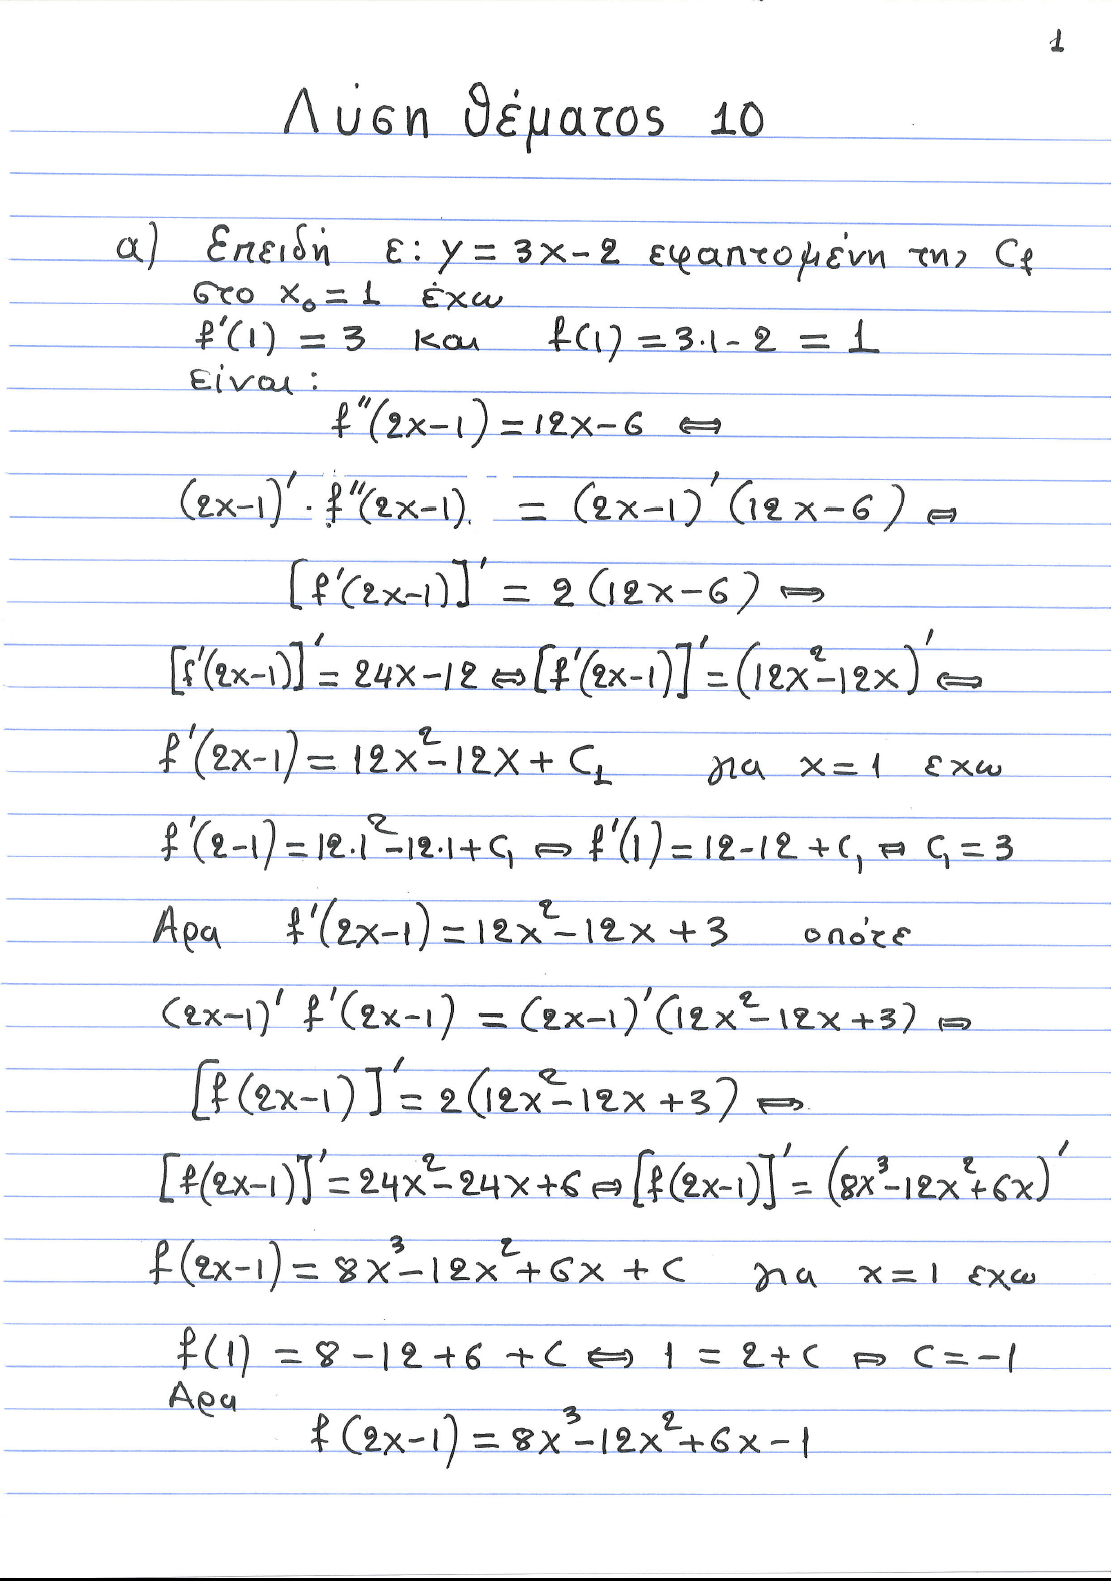 1
Λύση θέματος 10
α) Επειδή ε: y = 3x - 2 εφαπτομένη της Cf
στο x₀ = 1 έχω
f'(1) = 3 και f(1) = 3·1 - 2 = 1
είναι:
f''(2x-1) = 12x - 6 ⇔
(2x-1)' · f''(2x-1) = (2x-1)' (12x-6) ⇔
[f'(2x-1)]' = 2 (12x-6) ⇔
[f'(2x-1)]' = 24x-12 ⇔ [f'(2x-1)]' = (12x²-12x)' ⇔
f'(2x-1) = 12x²-12x + C₁ για x = 1 εχω
f'(2-1) = 12·1²-12·1 + C₁ ⇔ f'(1) = 12-12 + C₁ ⇔ C₁ = 3
Αρα f'(2x-1) = 12x²-12x + 3 οπότε
(2x-1)' f'(2x-1) = (2x-1)' (12x²-12x+3) ⇔
[f(2x-1)]' = 2(12x²-12x+3) ⇔
[f(2x-1)]' = 24x²-24x+6 ⇔ [f(2x-1)]' = (8x³-12x²+6x)'
f(2x-1) = 8x³-12x²+6x + C για x = 1 εχω
f(1) = 8-12+6 + C ⇔ 1 = 2+C ⇔ C = -1
Αρα
f(2x-1) = 8x³-12x²+6x-1